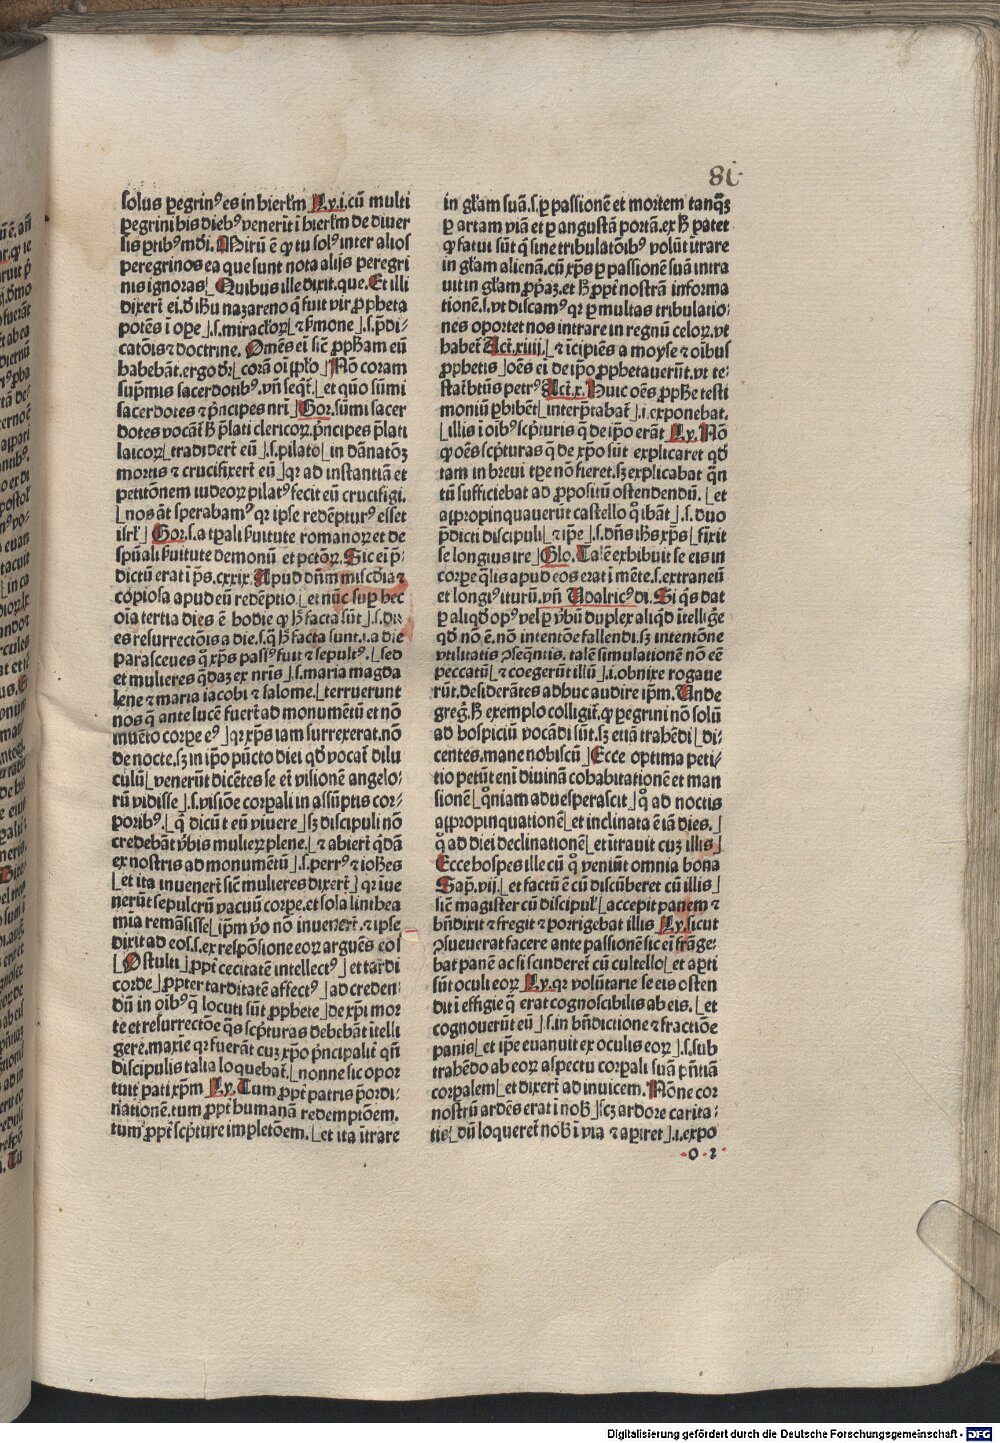 81
solus peregrinꝰ es in hierłm Ly.i.cū multi
peregrini his diebꝰ venerūt ī hierłm de diuer
sis ꝑtibꝰ mūdi. Mirū ē ꝙ tu solꝰ inter alios
peregrinos ea que sunt nota alijs peregri
nis ignoras⌊ Quibus ille dixit.que.Et illi
dixerūt ei.ď ihu nazareno q̄ fuit vir ꝓpheta
potēs ī ope ⌋.s.miraclorꝝ⌊⁊ ẜmone ⌋.s.p̄di⸗
catōis ⁊ doctrine. Omēs ei sic̄ ꝓphām eū
habebāt.ergo dr̄⌊corā oi ip̄lo⌋Nō coram
sup̄mis sacerdotibꝰ.vn̄ seqt̄.⌊et quō sūmi
sacerdotes ⁊ p̄ncipes nr̄i⌋Gor.sūmi sacer
dotes vocāt̄ ħ p̄lati clericoꝝ.p̄ncipes p̄lati
laicoꝝ⌊tradiderūt eū⌋.s.pilato⌊in dānatōꝫ
mortis ⁊ crucifixerūt eū⌋qꝛ ad instantiā et
petitōnem iudeoꝝ pilatꝰ fecit eū crucifigi.
⌊nos āt sperabamꝰ qꝛ ipse redēpturꝰ esset
isrł⌋Gor.s.a tꝑali ẜuitute romanoꝝ et de
spūali ẜuitute demonū et pctōꝝ.Sic ei p̄⸗
dictū erat ī ps̄.cxxix.Apud dn̄m misc̄dia ⁊
copiosa apud eū redēptio⌊et nūc suꝑ hec
oīa tertia dies ē hodie ꝙ ħ facta sūt⌋.s.di
es resurrectōis a die.s.q̄ ħ facta sunt.i.a die
parasceues q̄ xp̄s passꝰ fuit ⁊ sepultꝰ.⌊sed
et mulieres q̄daꝫ ex nr̄is⌋.s.maria magda
lene ⁊ maria iacobi ⁊ salome.⌊terruerunt
nos q̄ ante lucē fuerūt ad monumētū et nō
inuēto corpe eꝰ⌋qꝛ xp̄s iam surrexerat.nō
de nocte.sꝫ in ip̄o pūcto diei qď vocat̄ dilu
culū⌊venerūt dicētes se et̄ visionē angelo⸗
rū vidisse⌋.s.visiōe corꝑali in assūptis cor⸗
poribꝰ.⌊q̄ dicūt eū viuere⌋sꝫ discipuli nō
credebāt v̄bis mulieꝝ plene.⌊⁊ abierūt q̄dā
ex nostris ad monumētū⌋.s.petrꝰ ⁊ ioħes
⌊et ita inuenerūt sic̄ mulieres dixerūt⌋qꝛ iue
nerūt sepulcrū vacuū corpe.et sola linthea
mīa remāsisse⌊ip̄m v̄o nō inuenerūt.⁊ ipse
dixit ad eos.s.ex respōsione eoꝝ arguēs eos
⌊O stulti⌋ꝓpt̄ cecitatē intellectꝰ⌋et tardi
corde⌋ꝓpter tarditatē affectꝰ⌋ad creden⸗
dū in oībꝰ q̄ locuti sūt ꝓphete⌋de xp̄i mor
te et resurrectōe q̄s sc̄pturas debebāt ītelli
gere.maxīe qꝛ fuerāt cuꝫ xp̄o p̄ncipalit̄ qn̄
discipulis talia loquebat̄.⌊nonne sic opor
tuit pati xp̄m Ly.Tum ꝓpt̄ patris p̄ordi⸗
nationē.tum ꝓpt̄ humanā redemptōem.
tum ꝓpt̄ sc̄pture impletōem.⌊et ita ītrare
in gl̄am suā.s.ꝑ passionē et mortem tanqꝫ
ꝑ artam viā et ꝑ angustā portā.ex ħ patet
ꝙ fatui sūt q̄ sine tribulatōibꝰ volūt ītrare
in gl̄am alienā.cū xp̄s ꝑ passionē suā intra
uit in gl̄am ꝓp̄aꝫ.et ħ ꝓpt̄ nostrā informa
tionē.s.vt discamꝰ qꝛ ꝑ multas tribulatio⸗
nes oportet nos intrare in regnū celoꝝ.vt
habet̄ Act̄.xiiij.⌊⁊ īcipiēs a moyse ⁊ oībus
ꝓphetis⌋oēs ei de ip̄o ꝓphetauerūt.vt te⸗
stat̄ btūs petrꝰ Act̄.x.Huic oēs ꝓpħe testi
moniū ꝑhibēt⌊interp̄tabat̄⌋.i.exponebat.
⌊illis ī oībꝰ sc̄pturis q̄ de ip̄o erāt Ly.Nō
ꝙ oēs sc̄pturas q̄ de xp̄o sūt explicaret qď
tam in breui tꝑe nō fieret.sꝫ explicabat q̄n
tū sufficiebat ad ꝓpositū ostendendū.⌊et
aꝓpinquauerūt castello q̄ ibāt⌋.s.duo
p̄dicti discipuli⌊⁊ ip̄e⌋.s.dn̄s ihs̄ xp̄s⌊finxit
se longius ire⌋Glo.Talē exhibuit se eis in
corpe q̄lis apud eos erat ī mēte.s.extraneū
et longꝰ iturū.vn̄ Udalricꝰ di.Si q̄s dat
ꝑ aliqď opꝰ vel ꝑ v̄bū duplex aliqď ītellige
qď nō ē.nō intentōe fallendi.sꝫ intentōne
vtilitatis ꝯseq̄ntis.talē simulationē nō eē
peccatū⌊⁊ coegerūt illū⌋.i.obnixe rogaue
rūt.desiderātes adhuc audire ip̄m.Unde
greg̃.ħ exemplo colligit̄.ꝙ peregrini nō solū
ad hospiciū vocādi sūt.sꝫ etiā trahēdi⌊di⸗
centes.mane nobiscū⌋Ecce optima peti⸗
tio petūt enī diuinā cohabitationē et man
sionē⌊qm̄niam aduesperascit⌋q̄ ad noctis
aꝓpinquationē⌊et inclinata ē iā dies.⌋
q̄ ad diei declinationē⌊et ītrauit cuꝫ illis⌋
Ecce hospes ille cū q̄ veniūt omnia bona
Sap̄.vij.⌊et factū ē cū discūberet cū illis⌋
sic̄ magister cū discipuł⌊accepit panem ⁊
bn̄dixit ⁊ fregit ⁊ porrigebat illis Ly.sicut
ꝯsueuerat facere ante passionē sic ei frāge⸗
bat panē ac si scinderet cū cultello⌊et aꝑti
sūt oculi eoꝝ Ly.qꝛ volūtarie se eis osten
dit ī effigie q̄ erat cognoscibilis ab eis.⌊et
cognouerūt eū⌋.s.in bn̄dictione ⁊ fractiōe
panis⌊et ip̄e euanuit ex oculis eoꝝ⌋.s.sub
trahēdo ab eoꝝ aspectu corꝑali suā pn̄tiā
corꝑalem⌊et dixerūt ad inuicem.Nōne cor
nostrū ardēs erat ī noƀ⌋sc̄ꝫ ardore carita⸗
tis⌊dū loqueret̄ noƀ ī via ⁊ aꝑiret⌋.i.expo
o 2
Digitalisierung gefördert durch die Deutsche Forschungsgemeinschaft - DFG